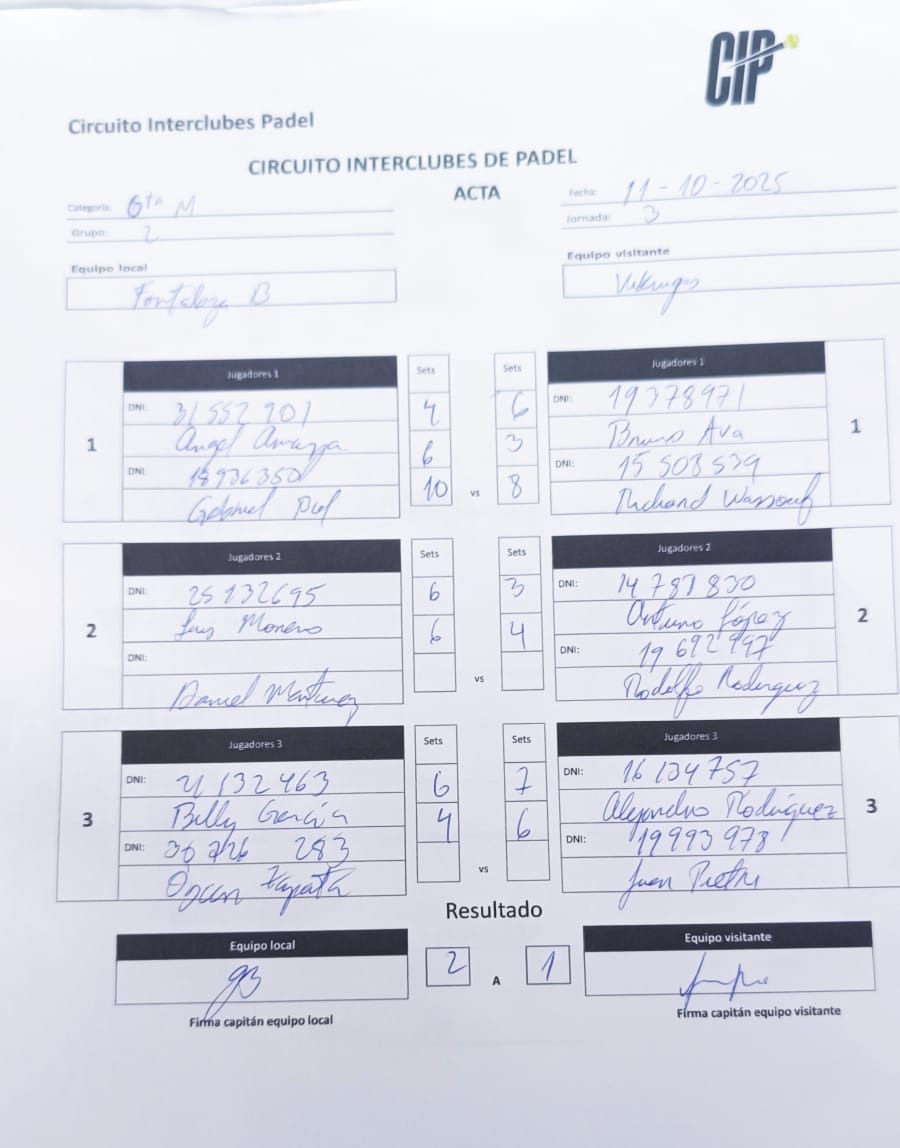 CIP
Circuito Interclubes Padel
CIRCUITO INTERCLUBES DE PADEL
ACTA
Categoría: 6ta M
Grupo: 2
Fecha: 11-10-2025
Jornada: 3
Equipo local
Fortaleza B
Equipo visitante
Vikingos
1
Jugadores 1
Sets
Sets
Jugadores 1
1
DNI: 31 552 901
4
6
DNI: 19378971
Angel
6
3
Bruno Ava
DNI: 18936350
10
vs
8
DNI: 15 503 539
Gabriel
Richard Wassouf
2
Jugadores 2
Sets
Sets
Jugadores 2
2
DNI: 25132695
6
3
DNI: 14 781 830
Luis Moreno
6
4
Arturo López
DNI:
vs
DNI: 19 692 997
Daniel Martinez
Rodolfo Rodriguez
3
Jugadores 3
Sets
Sets
Jugadores 3
3
DNI: 21 132 463
6
7
DNI: 16 134 757
Billy García
4
6
Alejandro Rodríguez
DNI: 283
vs
DNI: 19993 978
Zapata
Juan Pietri
Resultado
Equipo local
2
A
1
Equipo visitante
Firma capitán equipo local
Firma capitán equipo visitante